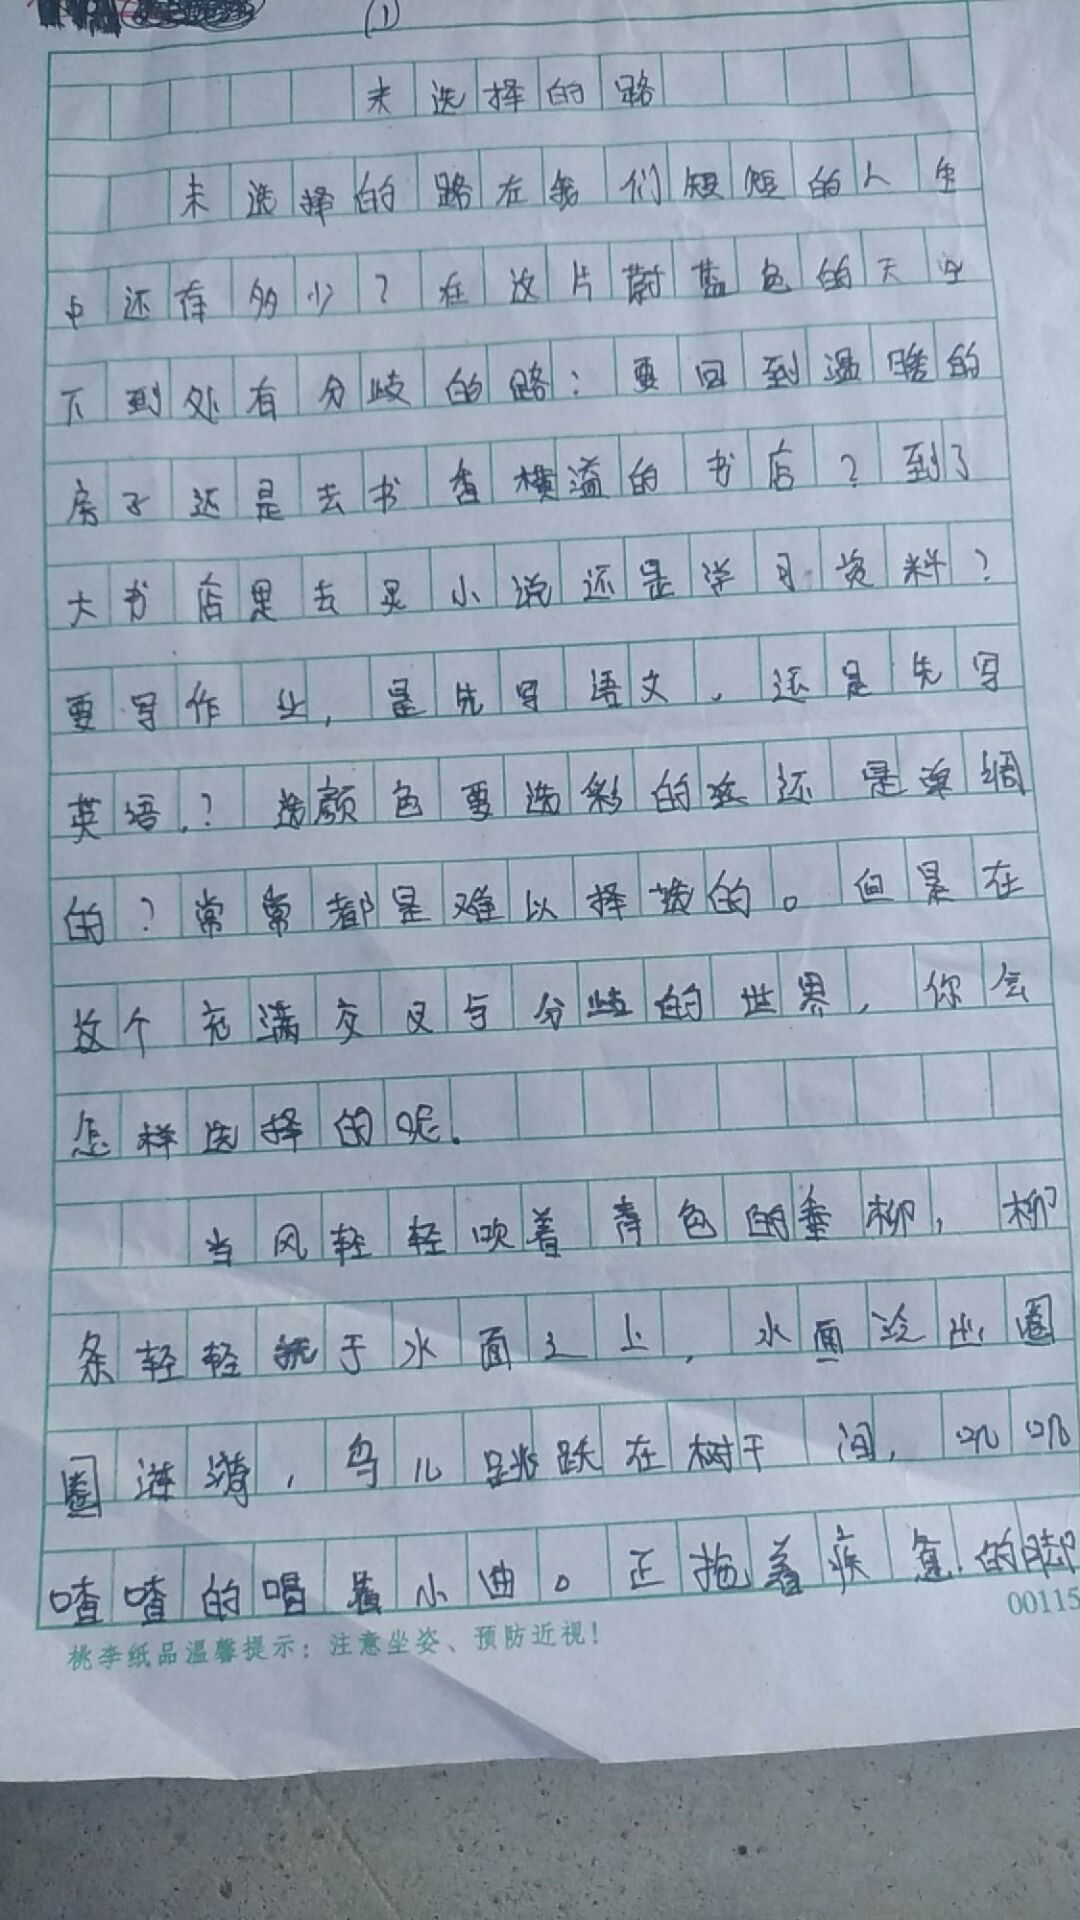 (1)
未选择的路
未选择的路在我们短短的人生
中还有多少？在这片蔚蓝色的天空
下到处有分歧的路：要回到温暖的
房子还是去书香横溢的书店？到了
大书店是去买小说还是学习资料？
要写作业，是先写语文，还是先写
英语，？选颜色要选彩的还是单调
的？常常都是难以择拨的。但是在
这个充满交叉与分歧的世界，你会
怎样选择的呢。
当风轻轻吹着青色的垂柳，柳
条轻轻抚于水面之上，水面泛出圈
圈涟漪，鸟儿跳跃在树干间，叽叽
喳喳的唱着小曲。正拖着疾惫的脚
桃李纸品温馨提示：注意坐姿、预防近视！
00115